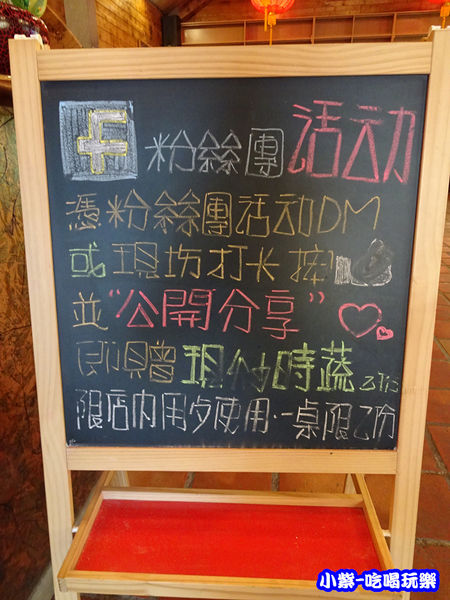 f 粉絲團活动
憑粉絲團活动DM
或現场打卡按
並"公開分享"
即贈現炒時蔬乙份
限店內用歺使用·一桌限乙份
小紫-吃喝玩樂